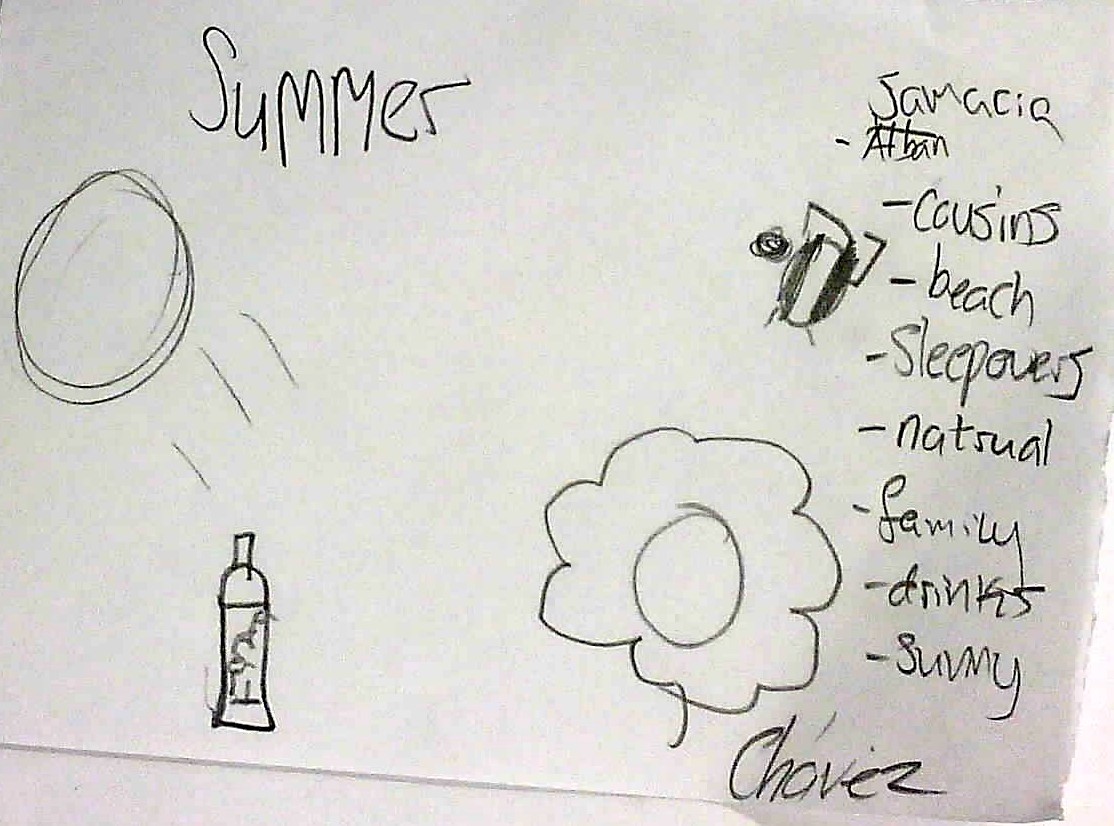 Summer
Jamacia
- Alban
- Cousins
- beach
- Sleepovers
- natrual
- family
- drinks
- Sunny
Chávez